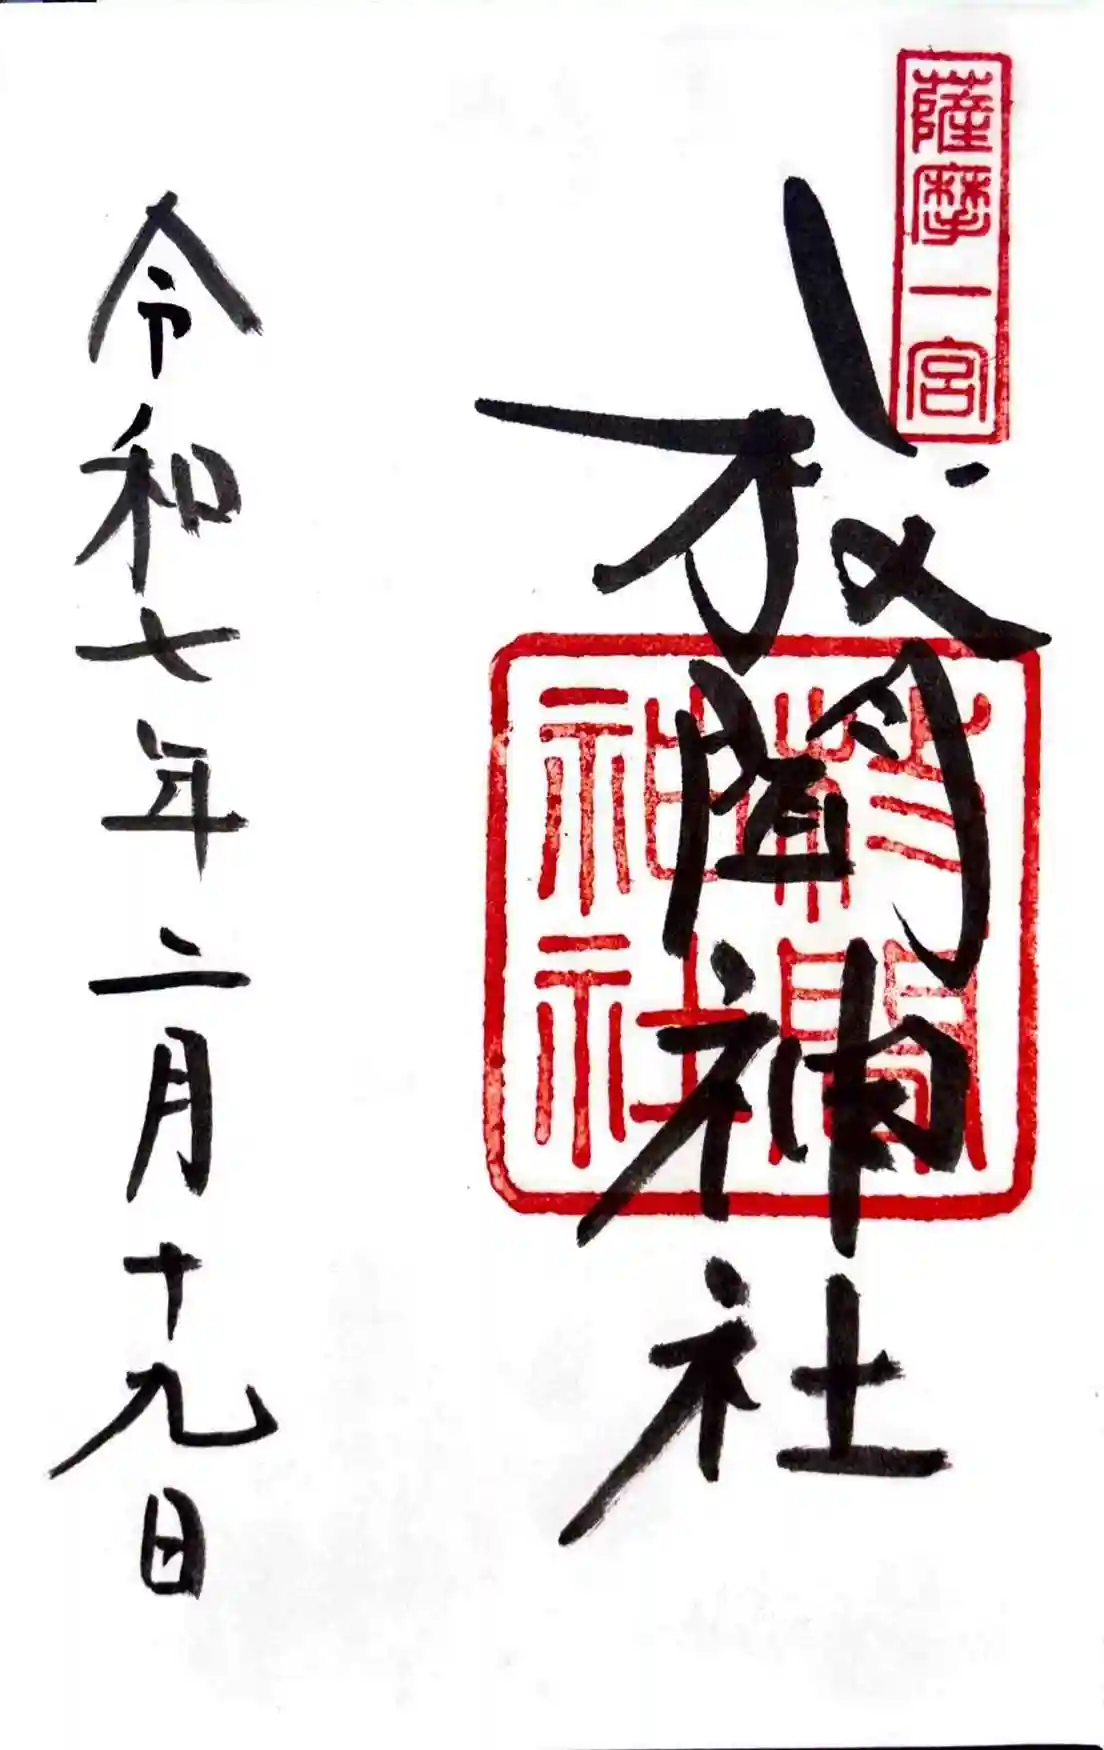 薩摩一宮
枚聞神社
枚聞神社
令和七年二月十九日